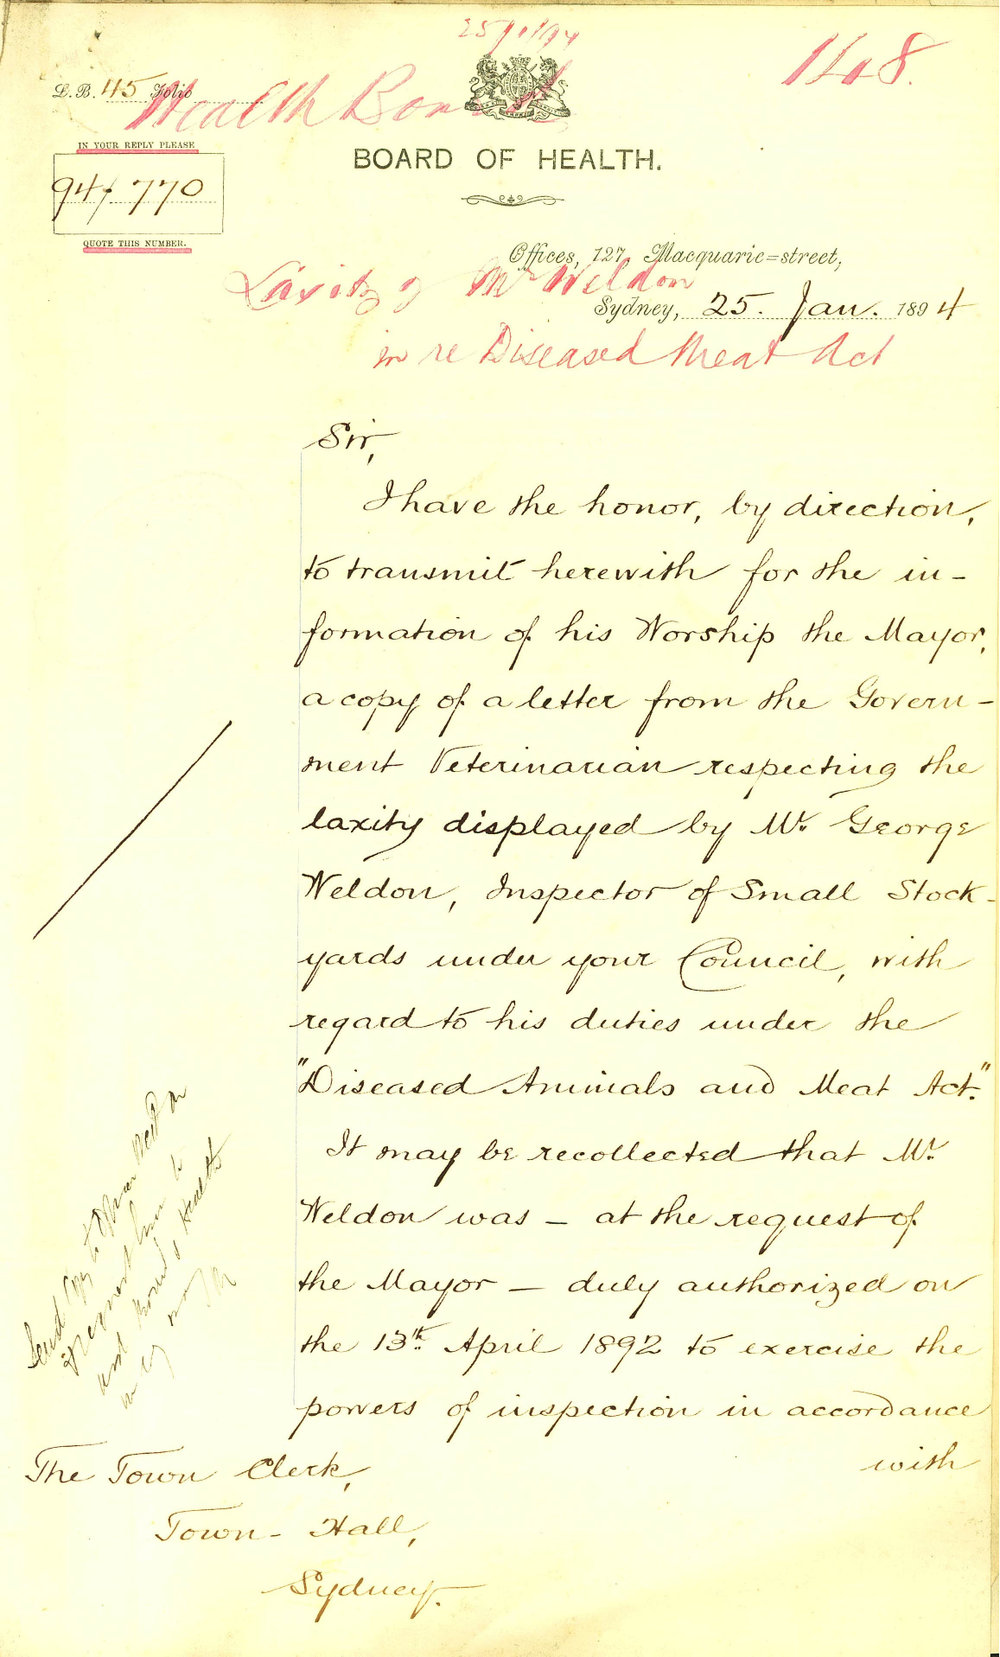 25 Jan/94
1408.
L.B. 45 Folio
Health Board
IN YOUR REPLY PLEASE
94/770
QUOTE THIS NUMBER.
BOARD OF HEALTH.
Offices, 127, Macquarie=street,
Laxity of Mr Weldon
Sydney, 25. Jan. 1894
in re Diseased Meat Act
Sir,
I have the honor, by direction,
to transmit herewith for the in-
formation of his Worship the Mayor,
a copy of a letter from the Govern-
ment Veterinarian respecting the
laxity displayed by Mr. George
Weldon, Inspector of Small Stock-
yards under your Council, with
regard to his duties under the
"Diseased Animals and Meat Act."
It may be recollected that Mr.
Weldon was — at the request of
the Mayor — duly authorized on
the 13th. April 1892 to exercise the
powers of inspection in accordance
with
Send copy to
and Board of Health
The Town Clerk,
Town-Hall,
Sydney.